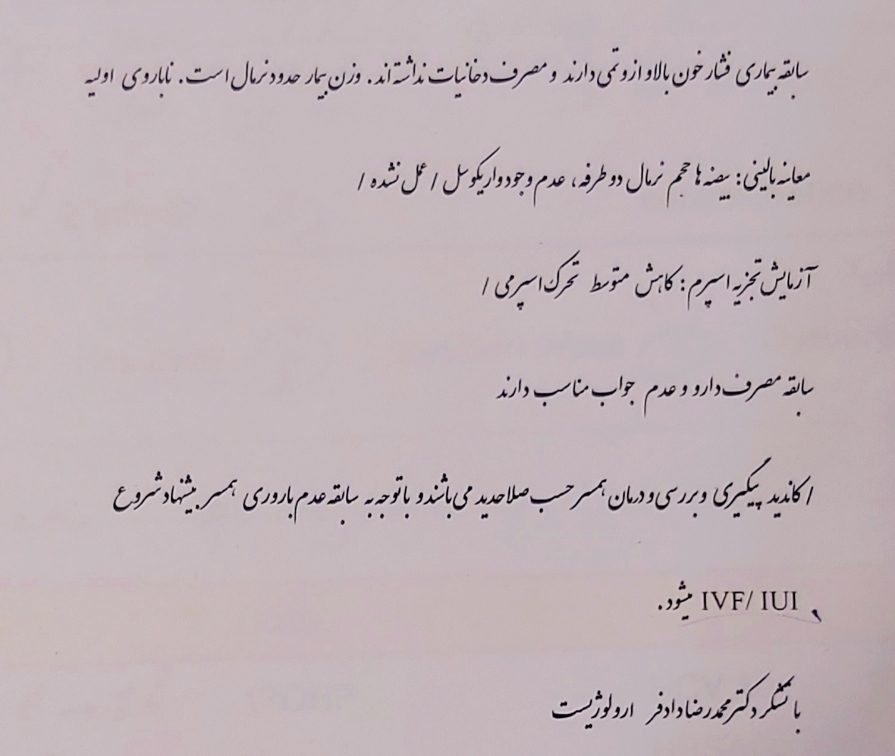 سابقه بیماری فشار خون بالا و ازوتمی دارند و مصرف دخانیات نداشته اند. وزن بیمار حدود نرمال است. ناباروی اولیه
معاینه بالینی: بیضه ها حجم نرمال دو طرفه، عدم وجود واریکوسل / عمل نشده /
آزمایش تجزیه اسپرم: کاهش متوسط تحرک اسپرمی /
سابقه مصرف دارو و عدم جواب مناسب دارند
/ کاندید پیگیری و بررسی و درمان همسر حسب صلاحدید می باشند و با توجه به سابقه عدم باروری همسر پیشنهاد شروع
IVF/ IUI میشود.
با تشکر دکتر محمدرضا دادفر ارولوژیست